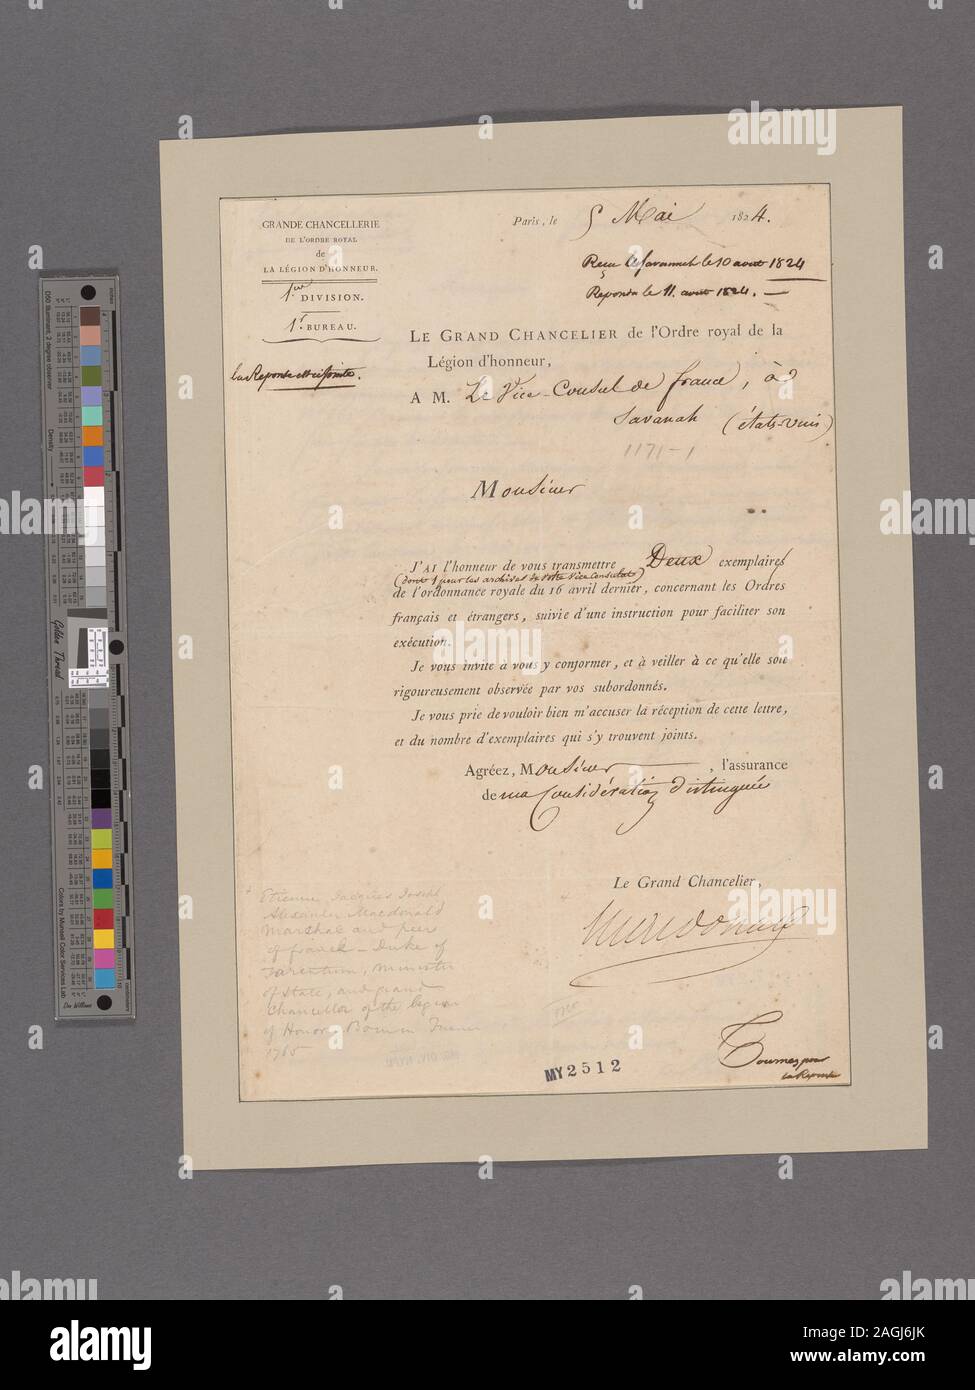 GRANDE CHANCELLERIE
DE L'ORDRE ROYAL
de
LA LÉGION D'HONNEUR.
1ère DIVISION.
1r. BUREAU.
la Reponse est ci jointe.
Paris, le 5 Mai 1824.
Reçu à Savannah le 10 aout 1824
Repondu le 11. aout 1824.
LE GRAND CHANCELIER de l'Ordre royal de la
Légion d'honneur,
A M. Le Vice-Consul de france, à
Savanah (états-unis)
1171-1
Monsieur
J'AI l'honneur de vous transmettre Deux exemplaires
(dont 1 pour les archives de votre Vice Consulat)
de l'ordonnance royale du 16 avril dernier, concernant les Ordres
français et étrangers, suivie d'une instruction pour faciliter son
exécution.
Je vous invite à vous y conformer, et à veiller à ce qu'elle soit
rigoureusement observée par vos subordonnés.
Je vous prie de vouloir bien m'accuser la réception de cette lettre,
et du nombre d'exemplaires qui s'y trouvent joints.
Agréez, Monsieur, l'assurance
de ma Considération distinguée
Le Grand Chancelier,
Macdonald
Etienne Jacques Joseph
Alexander Macdonald
Marshal and peer
of france - Duke of
Tarentum, Minister
of State, and grand
Chancellor of the legion
of Honor. Born in France
1765
MY 2512
Tournez pour
la Reponse
D50 Illuminant, 2 degree observer
Density
Golden Thread
Colors by Munsell Color Services Lab
inches
centimeters
alamy
alamy
Image ID: 2AGJ6JK
www.alamy.com